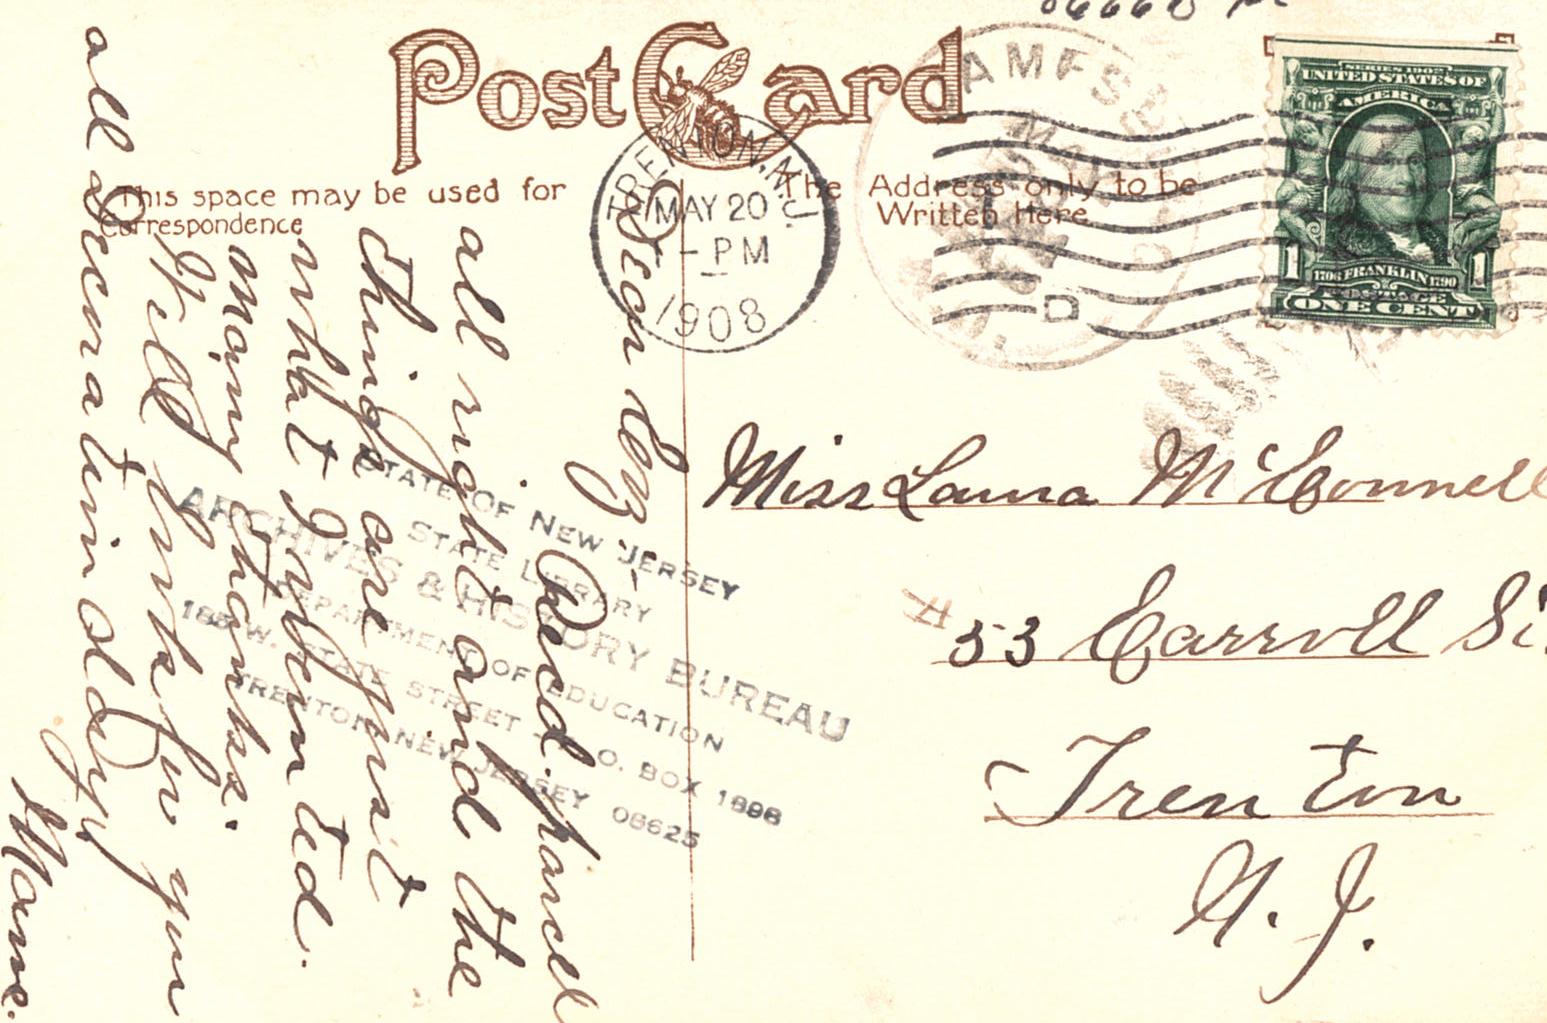 Post Card
This space may be used for
Correspondence
The Address only to be
Written Here
TRENTON, N.J.
MAY 20
- PM
1908
D
SERIES 1902
UNITED STATES OF
AMERICA
1706 FRANKLIN 1790
POSTAGE
1 1
ONE CENT
Miss Laura McConnell
53 Carroll St.
Trenton
N. J.
Dear Coz:-
Recd. parcel
all right and the
things are just
what I wanted.
Many thanks.
Will look for you
all Decoration day.
Mame.
STATE OF NEW JERSEY
STATE LIBRARY
ARCHIVES & HISTORY BUREAU
DEPARTMENT OF EDUCATION
185 W. STATE STREET - P.O. BOX 1898
TRENTON, NEW JERSEY 08625